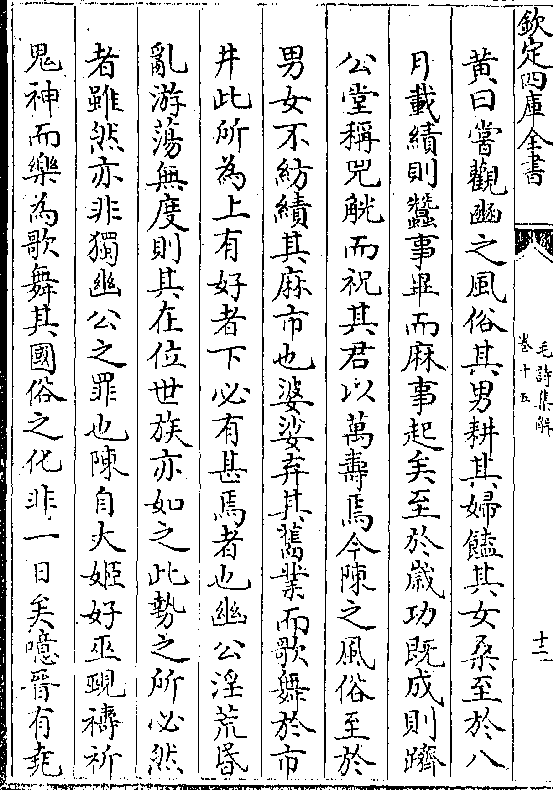 欽定四庫全書
毛詩集解
卷十五
十三
黄曰嘗觀豳之風俗其男耕其婦饁其女桑至於八
月載績則蠶事畢而麻事起矣至於歳功既成則躋
公堂稱兕觥而祝其君以萬壽焉今陳之風俗至於
男女不紡績其麻市也婆娑弃其舊業而歌舞於市
井此所為上有好者下必有甚焉者也幽公淫荒昏
亂游蕩無度則其在位世族亦如之此勢之所必然
者雖然亦非獨幽公之罪也陳自大姬好巫覡禱祈
鬼神而樂為歌舞其國俗之化非一日矣噫晉有堯